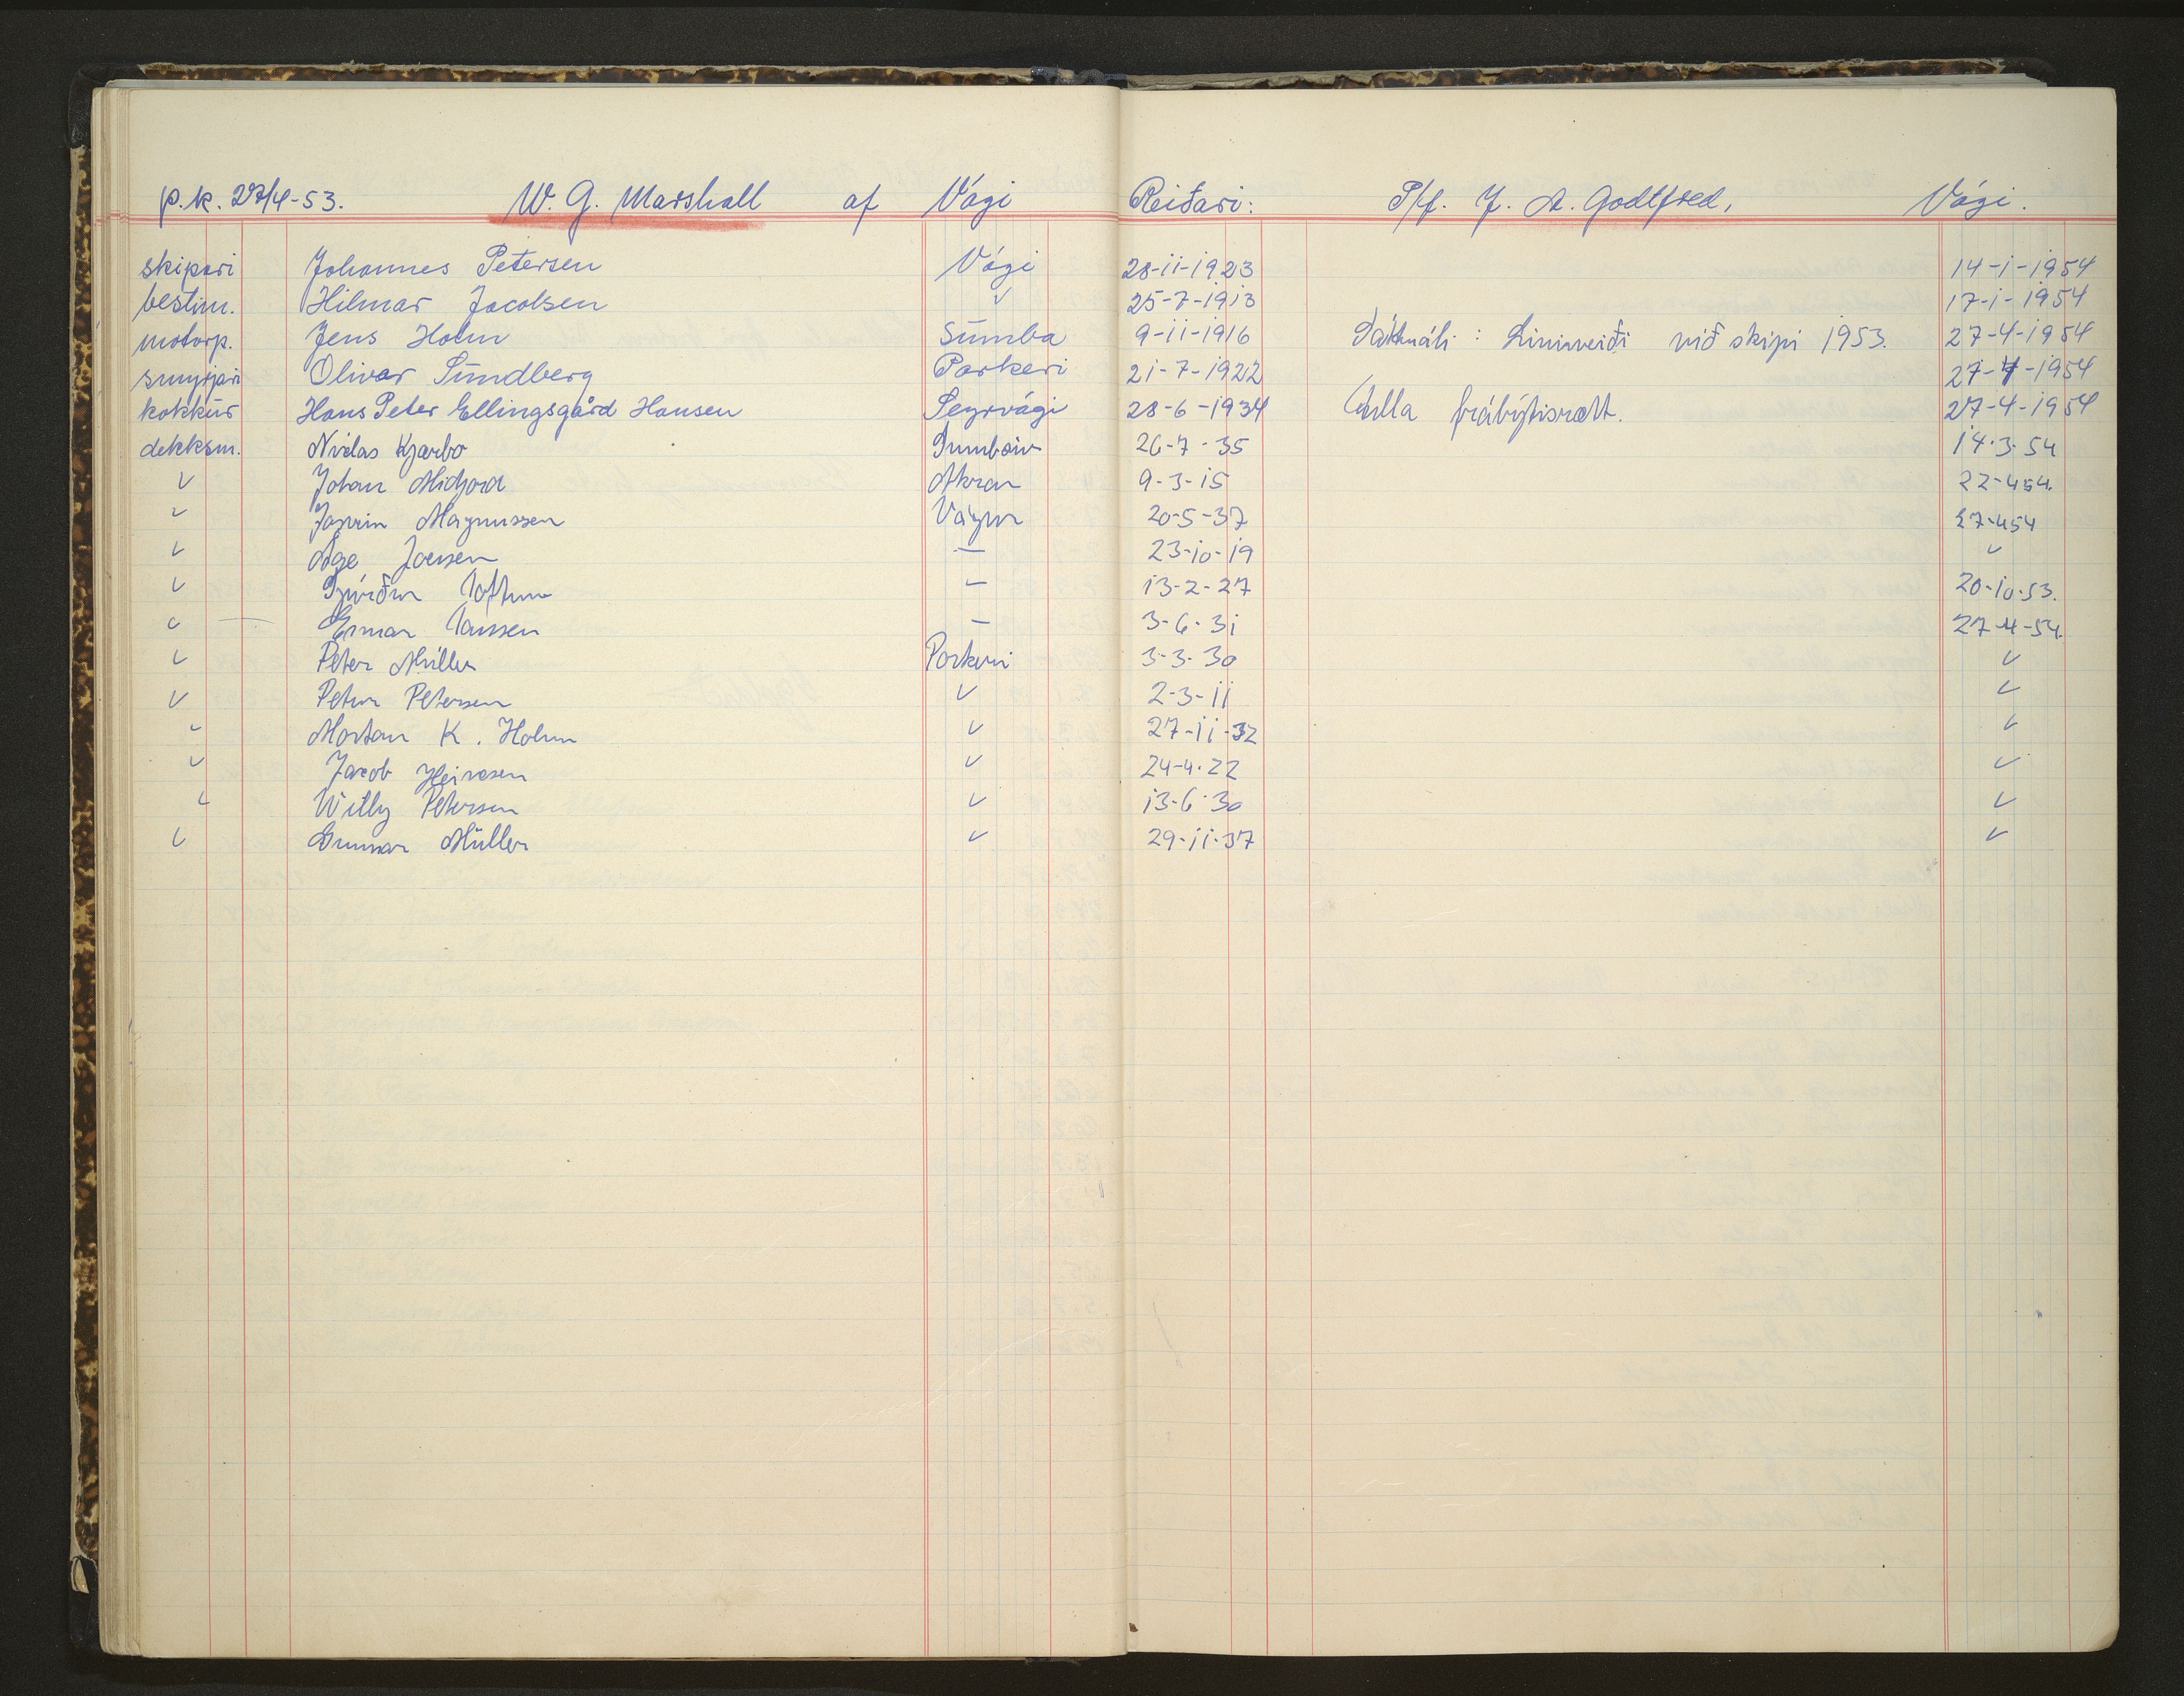 p.k. 27/4-53. W. G. Marshall af Vági Reiðari: P/f. J. A. Godtfred, Vági.
skipari Johannes Petersen Vági 28-11-1923 14-1-1954
bestm. Hilmar Jacobsen ✓ 25-7-1913 17-1-1954
motorp. Jens Holm Sumba 9-11-1916 Sáttmáli: Línuveiði við skipi 1953. 27-4-1954
smyrjari Olivar Sundberg Porkeri 21-7-1922 27-4-1954
kokkur Hans Peter Ellingsgård Hansen Seyrvági 28-6-1934 Útlla frábýtisrætt. 27-4-1954
dekksm. Niclas Kjærbo Sumbøiv 26-7-35 14.3.54
✓ Johan Midjord Akrar 9-3-15 22-4 54.
✓ Magnussen Vágur 20-5-37 27-454
✓ Åge Joensen — 23-10-19 ✓
✓ Toftum — 13-2-27 20-10-53.
✓ Ermar Joensen — 3-6-31 27-4-54.
✓ Peter Müller Porkeri 3-3-30 ✓
✓ Petur Petersen ✓ 2-3-11 ✓
✓ Mortan K. Holm ✓ 27-11-32 ✓
✓ Jacob Heinesen ✓ 24-4-22 ✓
✓ Willy Petersen ✓ 13-6-30 ✓
✓ Gunnar Müller ✓ 29-11-37 ✓